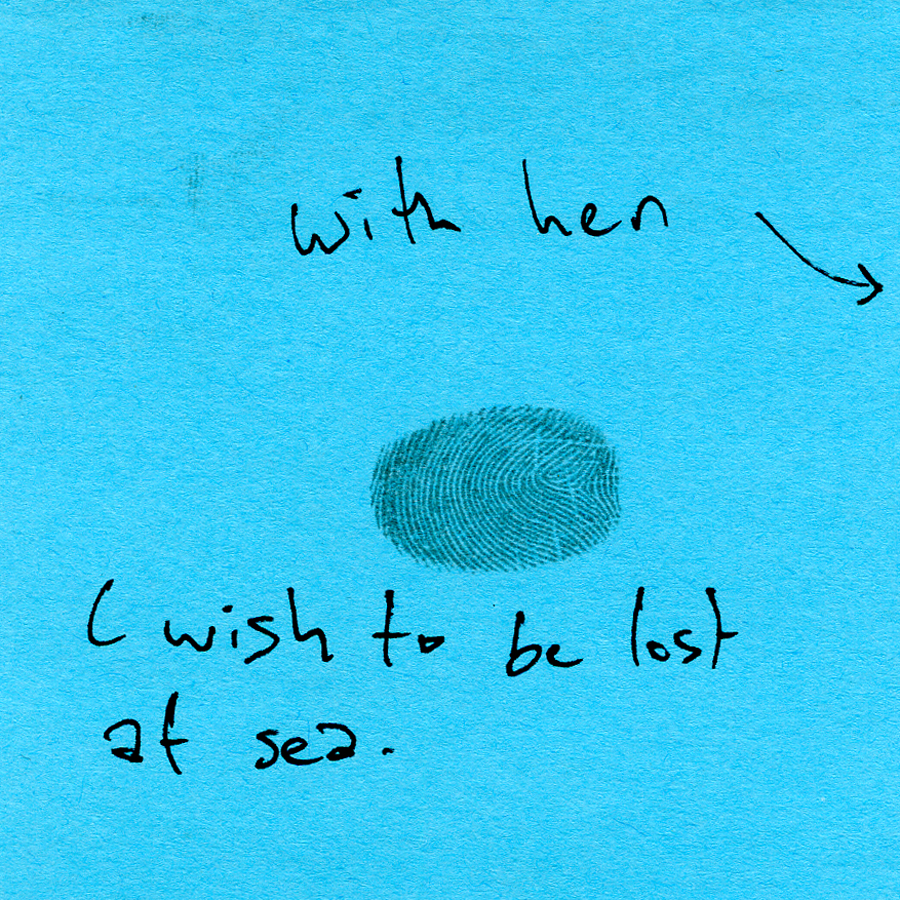 with her
I wish to be lost
at sea.